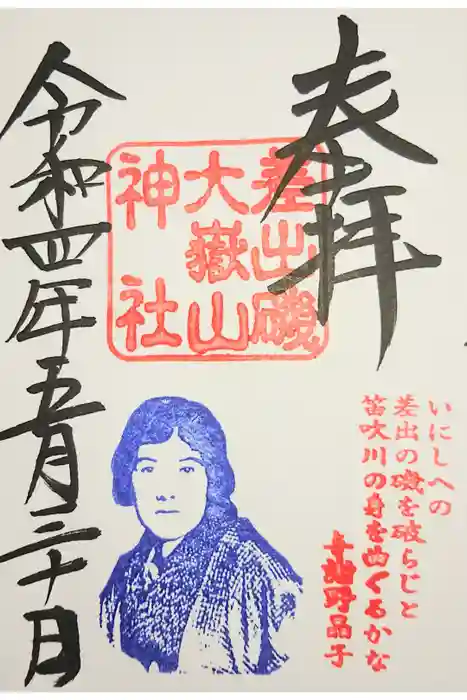 奉拝
差出磯
大嶽山
神社
令和四年五月三十日
いにしへの
差出の磯を破らじと
笛吹川の身を曲ぐるかな
与謝野晶子